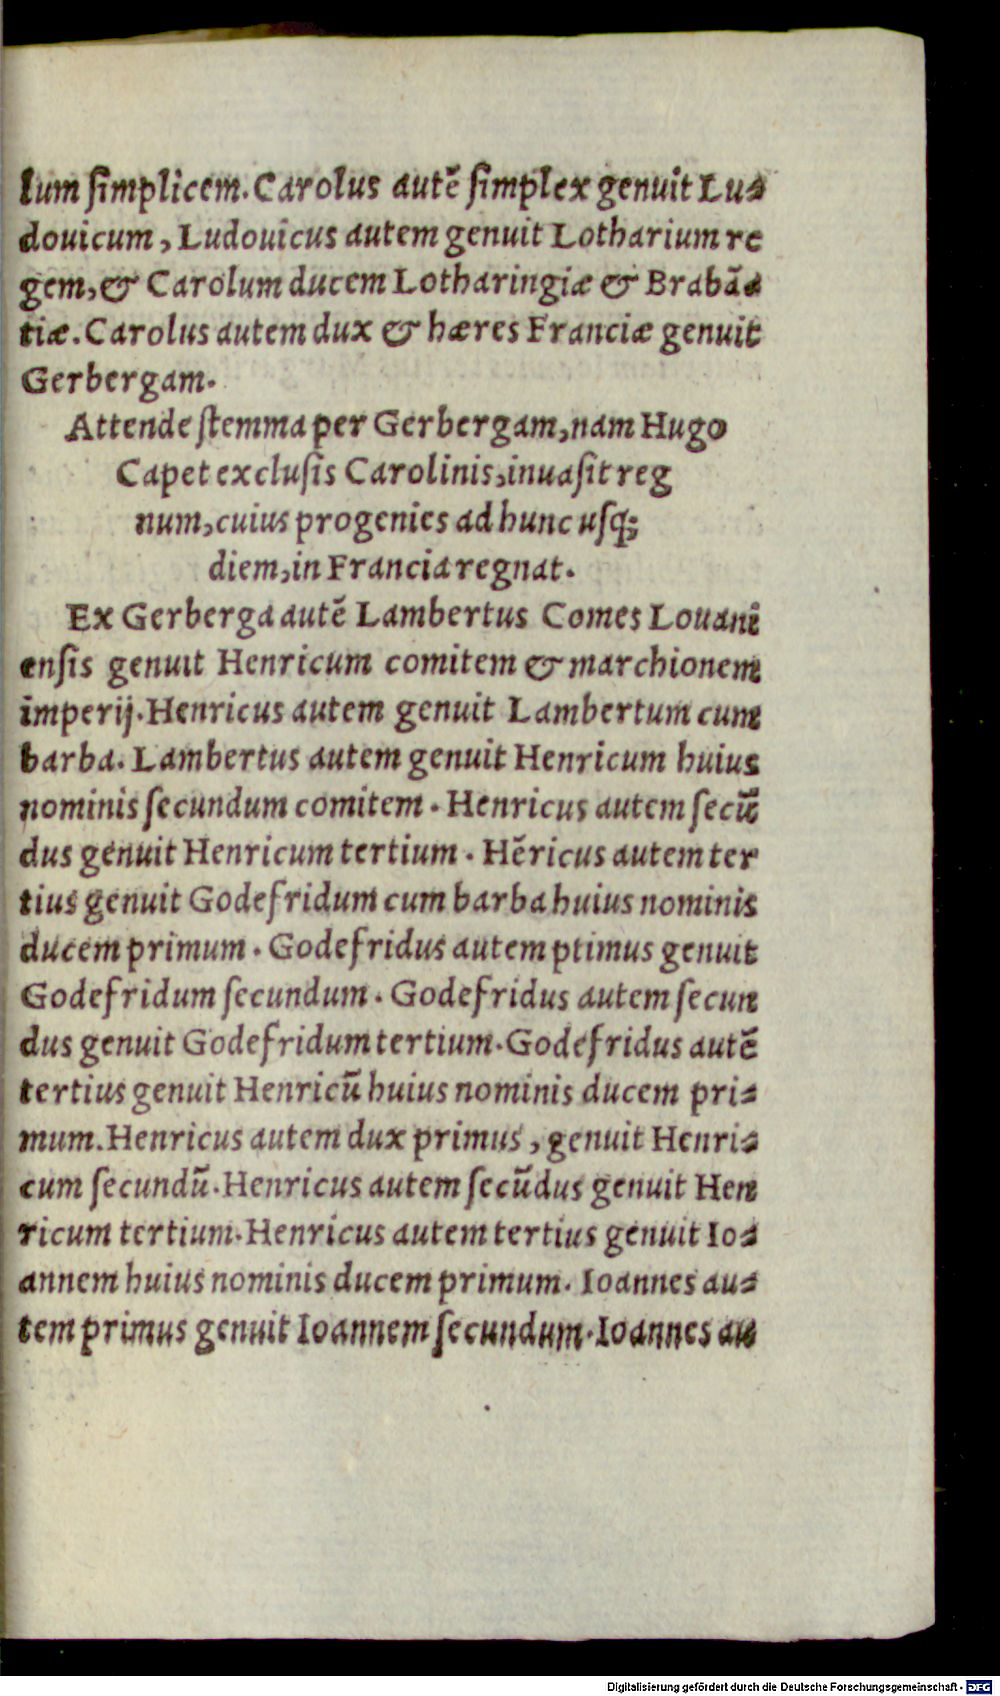 lum ſimplicem. Carolus autē ſimplex genuit Lu⸗
douicum, Ludouicus autem genuit Lotharium re
gem, & Carolum ducem Lotharingiæ & Brabā⸗
tiæ. Carolus autem dux & hæres Franciæ genuit
Gerbergam.
Attende ſtemma per Gerbergam, nam Hugo
Capet excluſis Carolinis, inuaſit reg
num, cuius progenies ad hunc uſq;
diem, in Francia regnat.
Ex Gerberga autē Lambertus Comes Louani
enſis genuit Henricum comitem & marchionem
imperij. Henricus autem genuit Lambertum cum
barba. Lambertus autem genuit Henricum huius
nominis ſecundum comitem. Henricus autem ſecū
dus genuit Henricum tertium. Hēricus autem ter
tius genuit Godefridum cum barba huius nominis
ducem primum. Godefridus autem ptimus genuit
Godefridum ſecundum. Godefridus autem ſecun
dus genuit Godefridum tertium. Godefridus autē
tertius genuit Henricū huius nominis ducem pri⸗
mum. Henricus autem dux primus, genuit Henri⸗
cum ſecundū. Henricus autem ſecūdus genuit Hen
ricum tertium. Henricus autem tertius genuit Io⸗
annem huius nominis ducem primum. Ioannes au⸗
tem primus genuit Ioannem ſecundum. Ioannes au
Digitalisierung gefördert durch die Deutsche Forschungsgemeinschaft - DFG